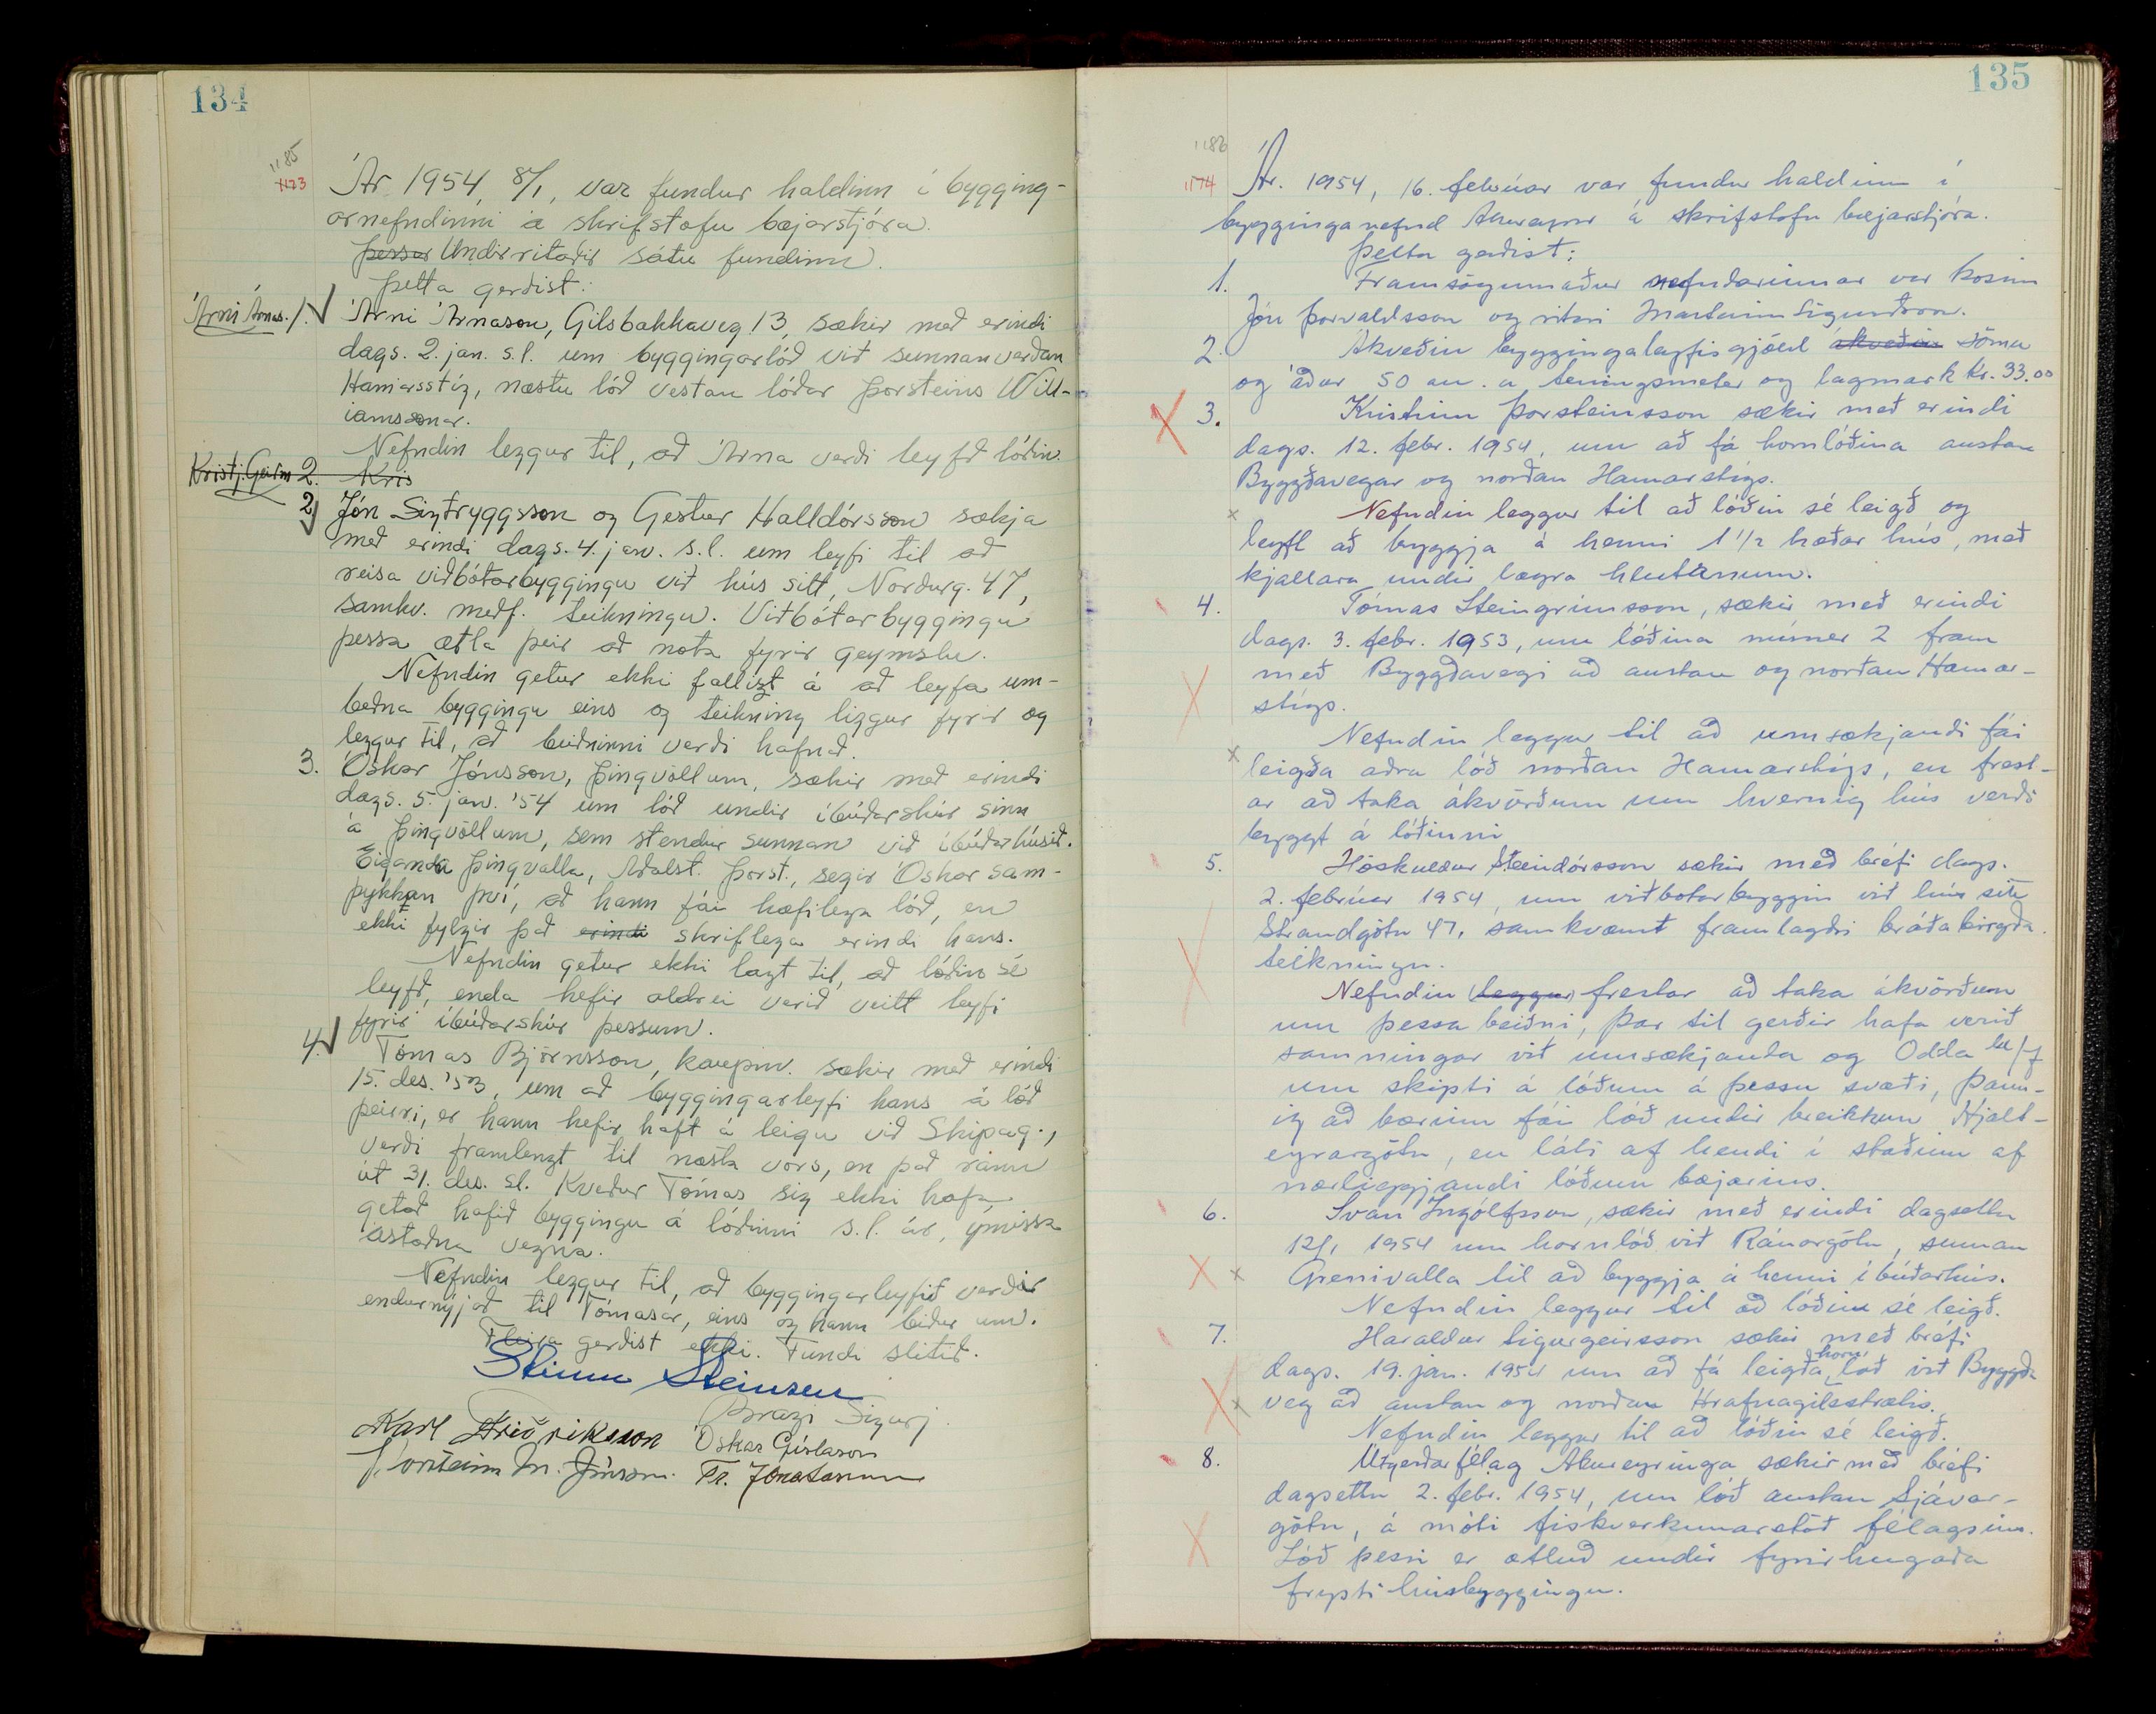 134
1185
1173
Ár 1954, 8/1, var fundur haldinn í bygging-
arnefndinni á skrifstofu bæjarstjóra.
Þessir Undirritaðir sátu fundinn.
Þetta gerðist:
Árni Árnas. 1. Árni Árnason, Gilsbakkaveg 13, sækir með erindi
dags. 2. jan. s.l. um byggingarlóð við sunnanverðan
Hamarsstíg, næstu lóð vestan lóðar Þorsteins Will-
iamssonar.
Nefndin leggur til, að Árna verði leyfð lóðin.
Kristj. Geirm 2. Kris
2 Jón Sigtryggsson og Gestur Halldórsson sækja
með erindi dags. 4. jan. s.l. um leyfi til að
reisa viðbótarbyggingu við hús sitt, Norðurg. 47,
samkv. meðf. teikningu. Viðbótarbyggingu
þessa ætla þeir að nota fyrir geymslu.
Nefndin getur ekki fallizt á að leyfa um-
beðna byggingu eins og teikning liggur fyrir og
leggur til, að beiðninni verði hafnað.
3. Óskar Jónsson, Þingvöllum, sækir með erindi
dags. 5. jan. '54 um lóð undir íbúðarskúr sinn
á Þingvöllum, sem stendur sunnan við íbúðarhúsið.
Eiganda Þingvalla, Aðalst. Þorst., segir Óskar sam-
þykkan því, að hann fái hæfilega lóð, en
ekki fylgir það erindi skriflega erindi hans.
Nefndin getur ekki lagt til, að lóðin sé
leyfð, enda hefir aldrei verið veitt leyfi
fyrir íbúðarskúr þessum.
4. Tómas Björnsson, kaupm. sækir með erindi
15. des. '53, um að byggingarleyfi hans á lóð
þeirri, er hann hefir haft á leigu við Skipag.,
verði framlengt til næsta vors, en það rann
út 31. des. sl. Kveður Tómas sig ekki hafa
getað hafið byggingu á lóðinni s.l. ár, ýmissa
ástæðna vegna.
Nefndin leggur til, að byggingarleyfið verði
endurnýjað til Tómasar, eins og hann biður um.
Fleira gerðist ekki. Fundi slitið.
Steinn Steinsen
Bragi Sigurj.
Karl Friðriksson Óskar Gíslason
Þorsteinn M. Jónsson. Tr. Jónatansson
135
1186
1174
Ár. 1954, 16. febrúar var fundur haldinn í
bygginganefnd Akureyrar á skrifstofu bæjarstjóra.
Þetta gerðist:
1. Framsögumaður nefndarinnar var kosinn
Jón Þorvaldsson og ritari Marteinn Sigurðsson.
2. Ákveðin byggingaleyfisgjöld ákveðin sömu
og áður 50 au. á teningsmeter og lágmark kr. 33.00
3. Kristinn Þorsteinsson sækir með erindi
dags. 12. febr. 1954, um að fá hornlóðina austan
Byggðavegar og norðan Hamarstígs.
Nefndin leggur til að lóðin sé leigð og
leyft að byggja á henni 1 1/2 hæðar hús, með
kjallara undir lægra hlutanum.
4. Tómas Steingrímsson, sækir með erindi
dags. 3. febr. 1953, um lóðina númer 2 fram
með Byggðavegi að austan og norðan Hamar-
stígs.
Nefndin leggur til að umsækjandi fái
leigða aðra lóð norðan Hamarstígs, en frest-
ar að taka ákvörðum um hvernig hús verði
byggt á lóðinni
5. Höskuldur Steindórsson sækir með bréfi dags.
2. febrúar 1954, um viðbotarbyggin við hús sitt
Strandgötu 47, samkvæmt framlagðri bráðabirgða
teikningu.
Nefndin (leggur) frestar að taka ákvörðum
um þessa beiðni, þar til gerðir hafa verið
samningar við umsækjanda og Odda h/f
um skipti á lóðum á þessu svæði, þann-
ig að bærinn fái lóð undir breikkun Hjalt-
eyrargötu, en láti af hendi í staðinn af
nærliggjandi lóðum bæjarins.
6. Svan Ingólfsson, sækir með erindi dagsettu
12/1 1954 um hornlóð við Ránargötu, sunnan
Grenivalla til að byggja á henni íbúðarhús.
Nefndin leggur til að lóðin sé leigð.
7. Haraldur Sigurgeirsson sækir með bréfi
dags. 19. jan. 1954 um að fá leigða horn lóð við Byggða
veg að austan og norðan Hrafnagilsstrætis.
Nefndin leggur til að lóðin sé leigð.
8. Útgerðarfélag Akureyringa sækir með bréfi
dagsettu 2. febr. 1954, um lóð austan Sjávar-
götu, á móti fiskverkunarstöð félagsins.
Lóð þessi er ætluð undir fyrirhugaða
frystihúsbyggingu.